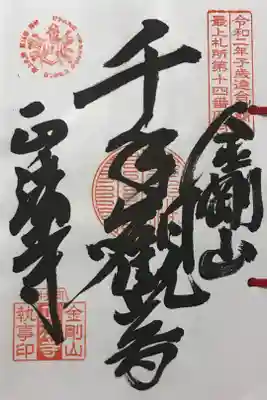 令和二年子歳連合開帳
最上札所第十四番
金剛山
千手観音
正法寺
金剛山
執事印